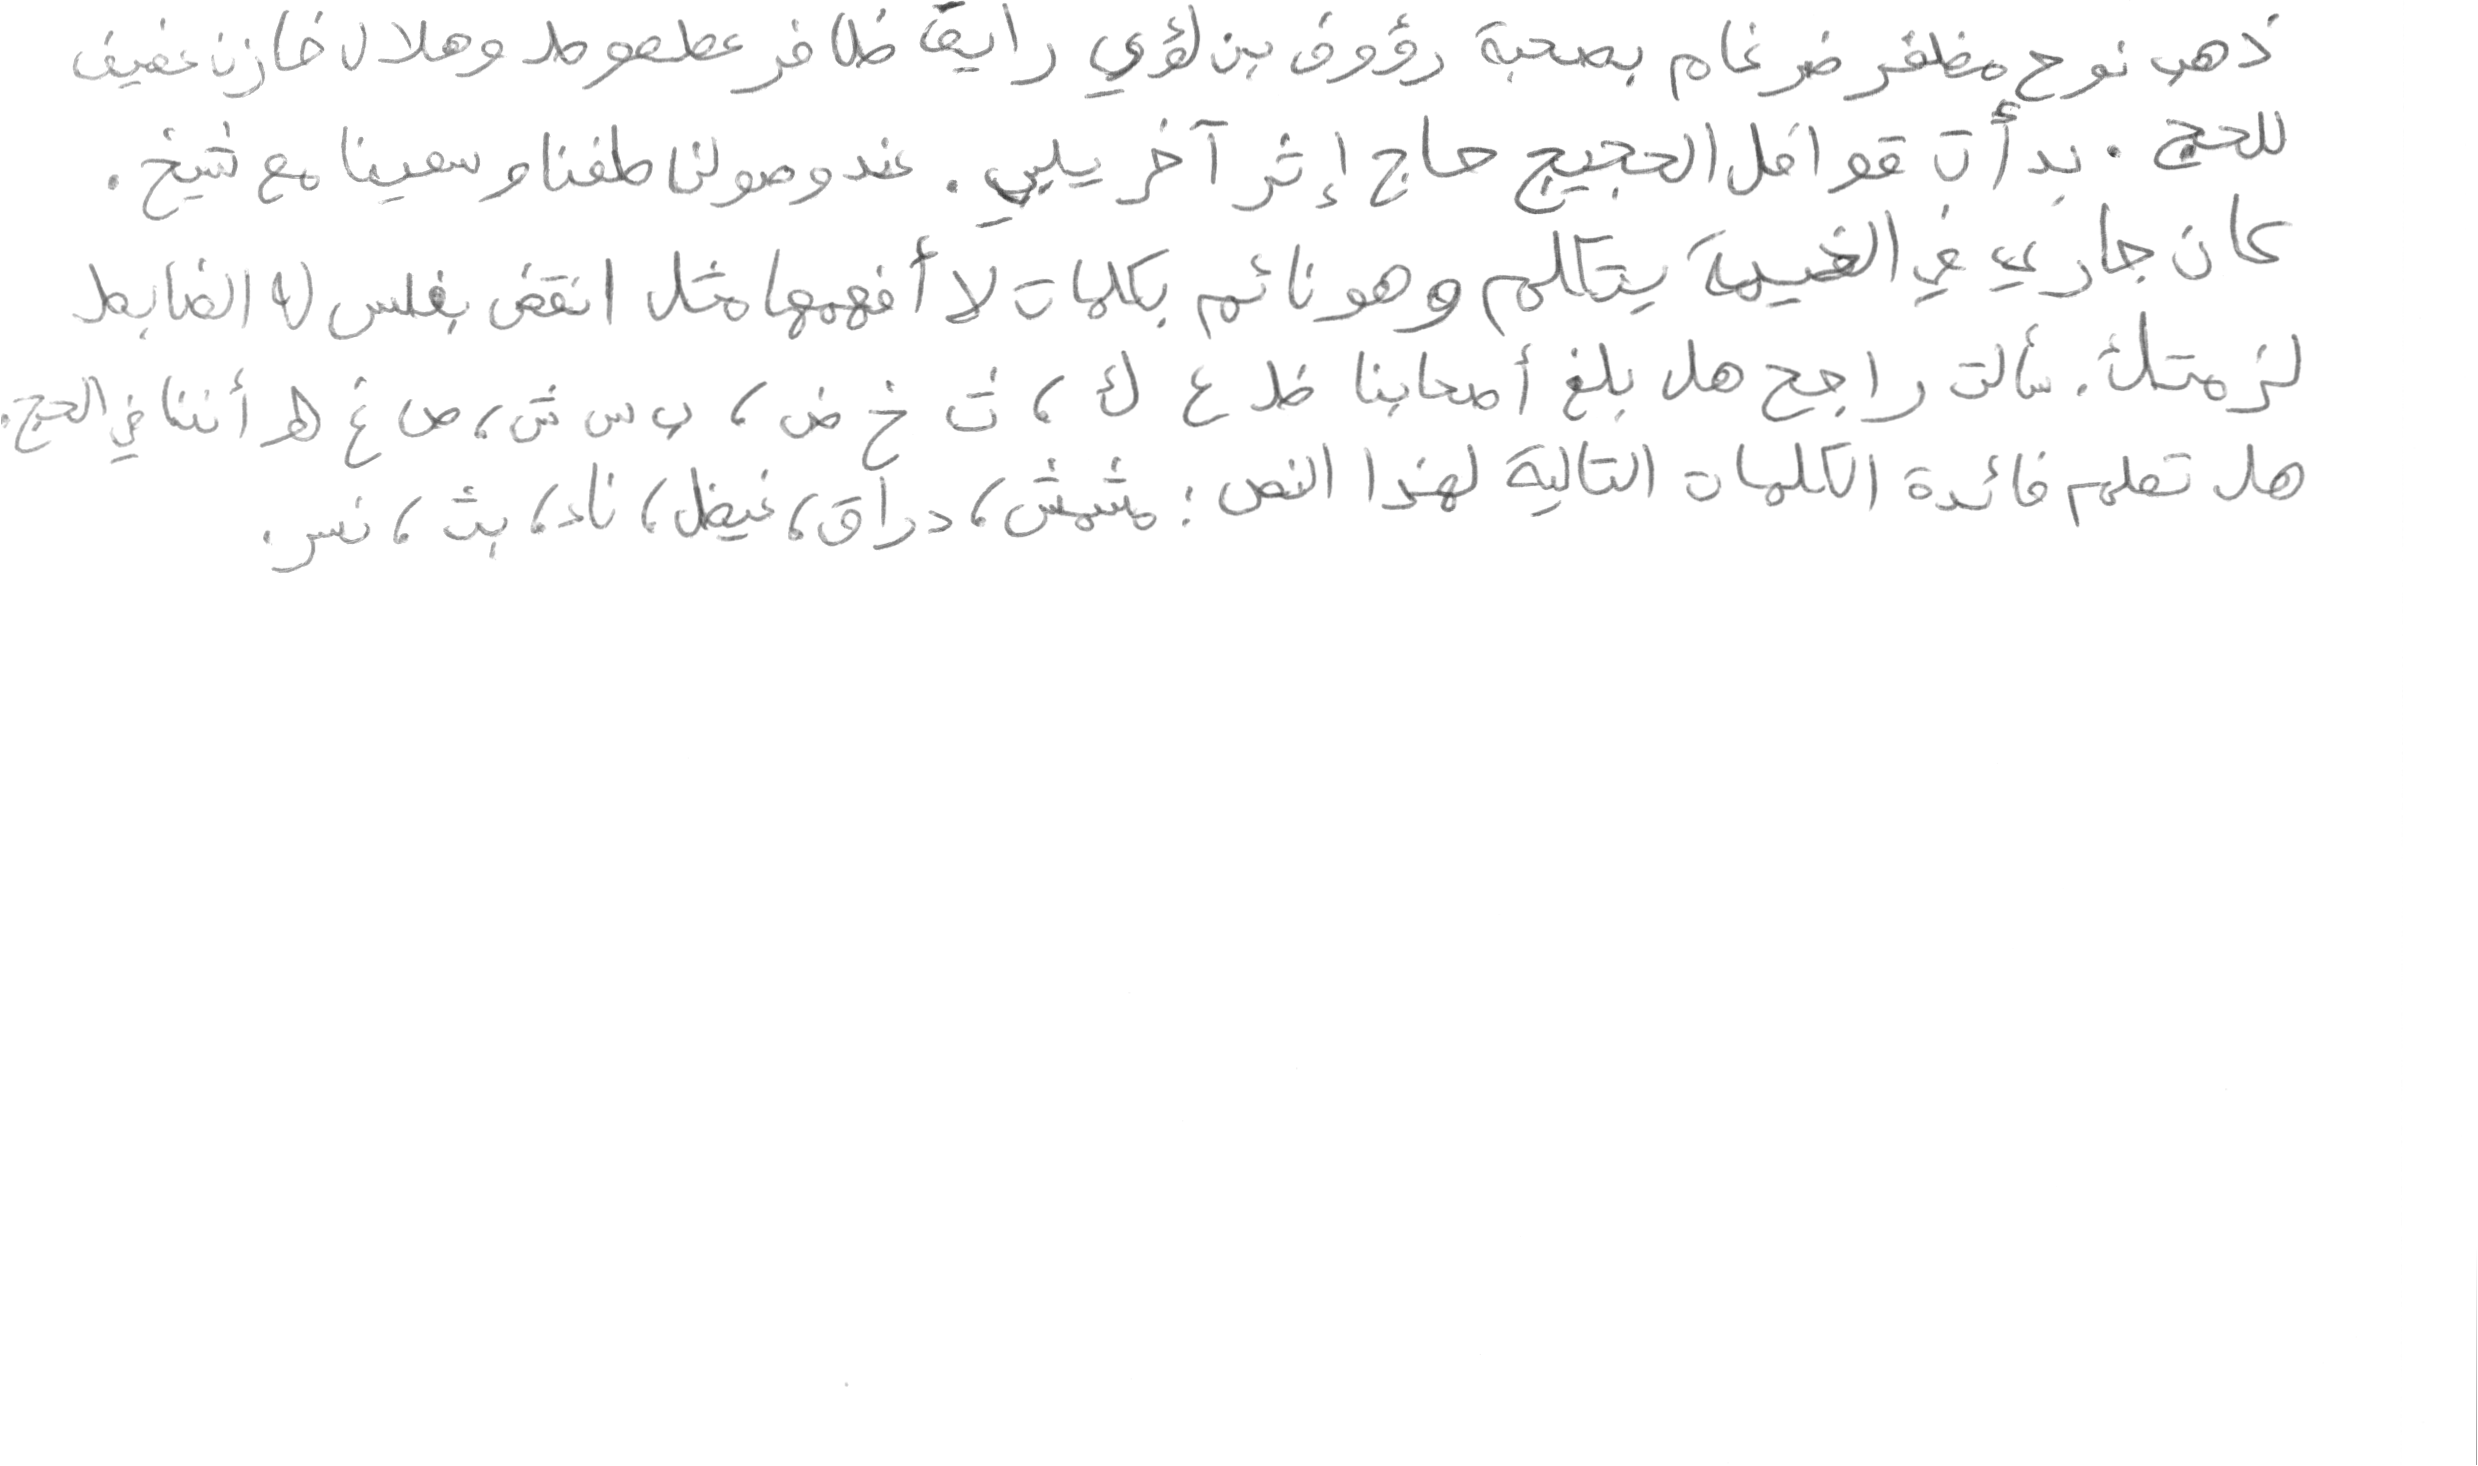 ذهب نوح مظفر ضرغام بصحبة رؤوف بن لؤي رايقا ظافر عطعوط وهلال خازنا خفيف
للحج. بدأت قوافل الحجيج حاج إثر آخر يلبي. عند وصولنا طفنا وسعينا مع شيخ.
كان جاري في الخيمة يتكلم وهو نائم بكلمات لا أفهمها مثل انقض بفلس له الضابط
لزمتك. سألت راجح هل بلغ أصحابنا ظ ع ك، ث خ ض، ب س ش، ص غ ط أننا في الحج.
هل تعلم فائدة الكلمات التالية لهذا النص: مشمش، دراق، غيظ، ناد، بث، نسر.